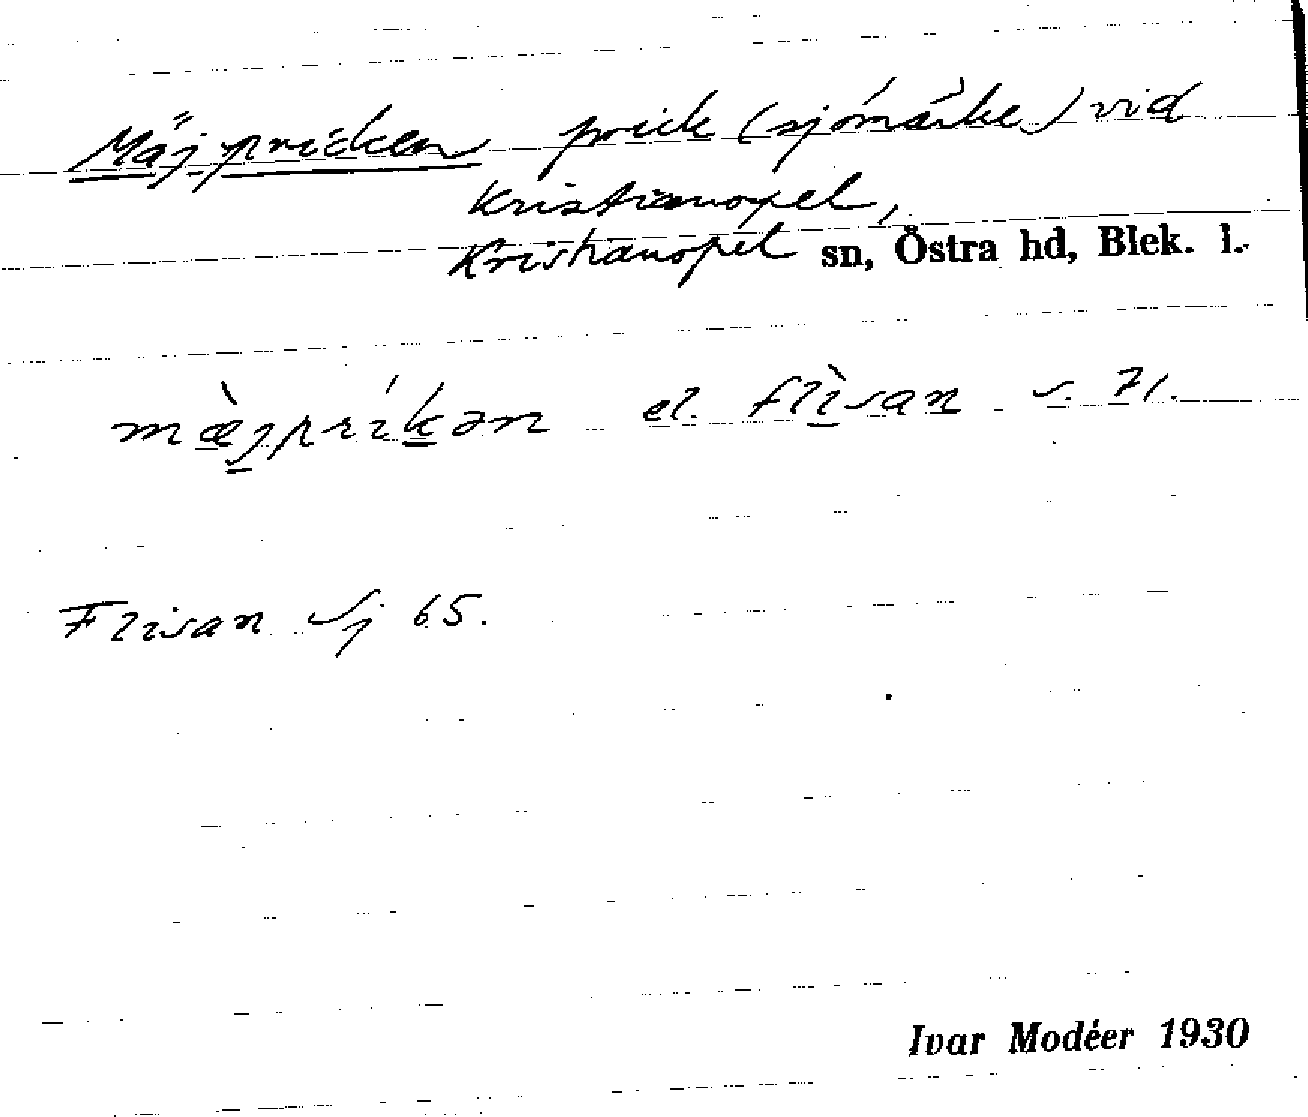 Mäjpricken prick (sjömärke) vid
Kristianopel,
Kristianopel sn, Östra hd, Blek. l.
mæ̀jpríkən el. flìsan s. 71.
Flisan Sj 65.
Ivar Modéer 1930